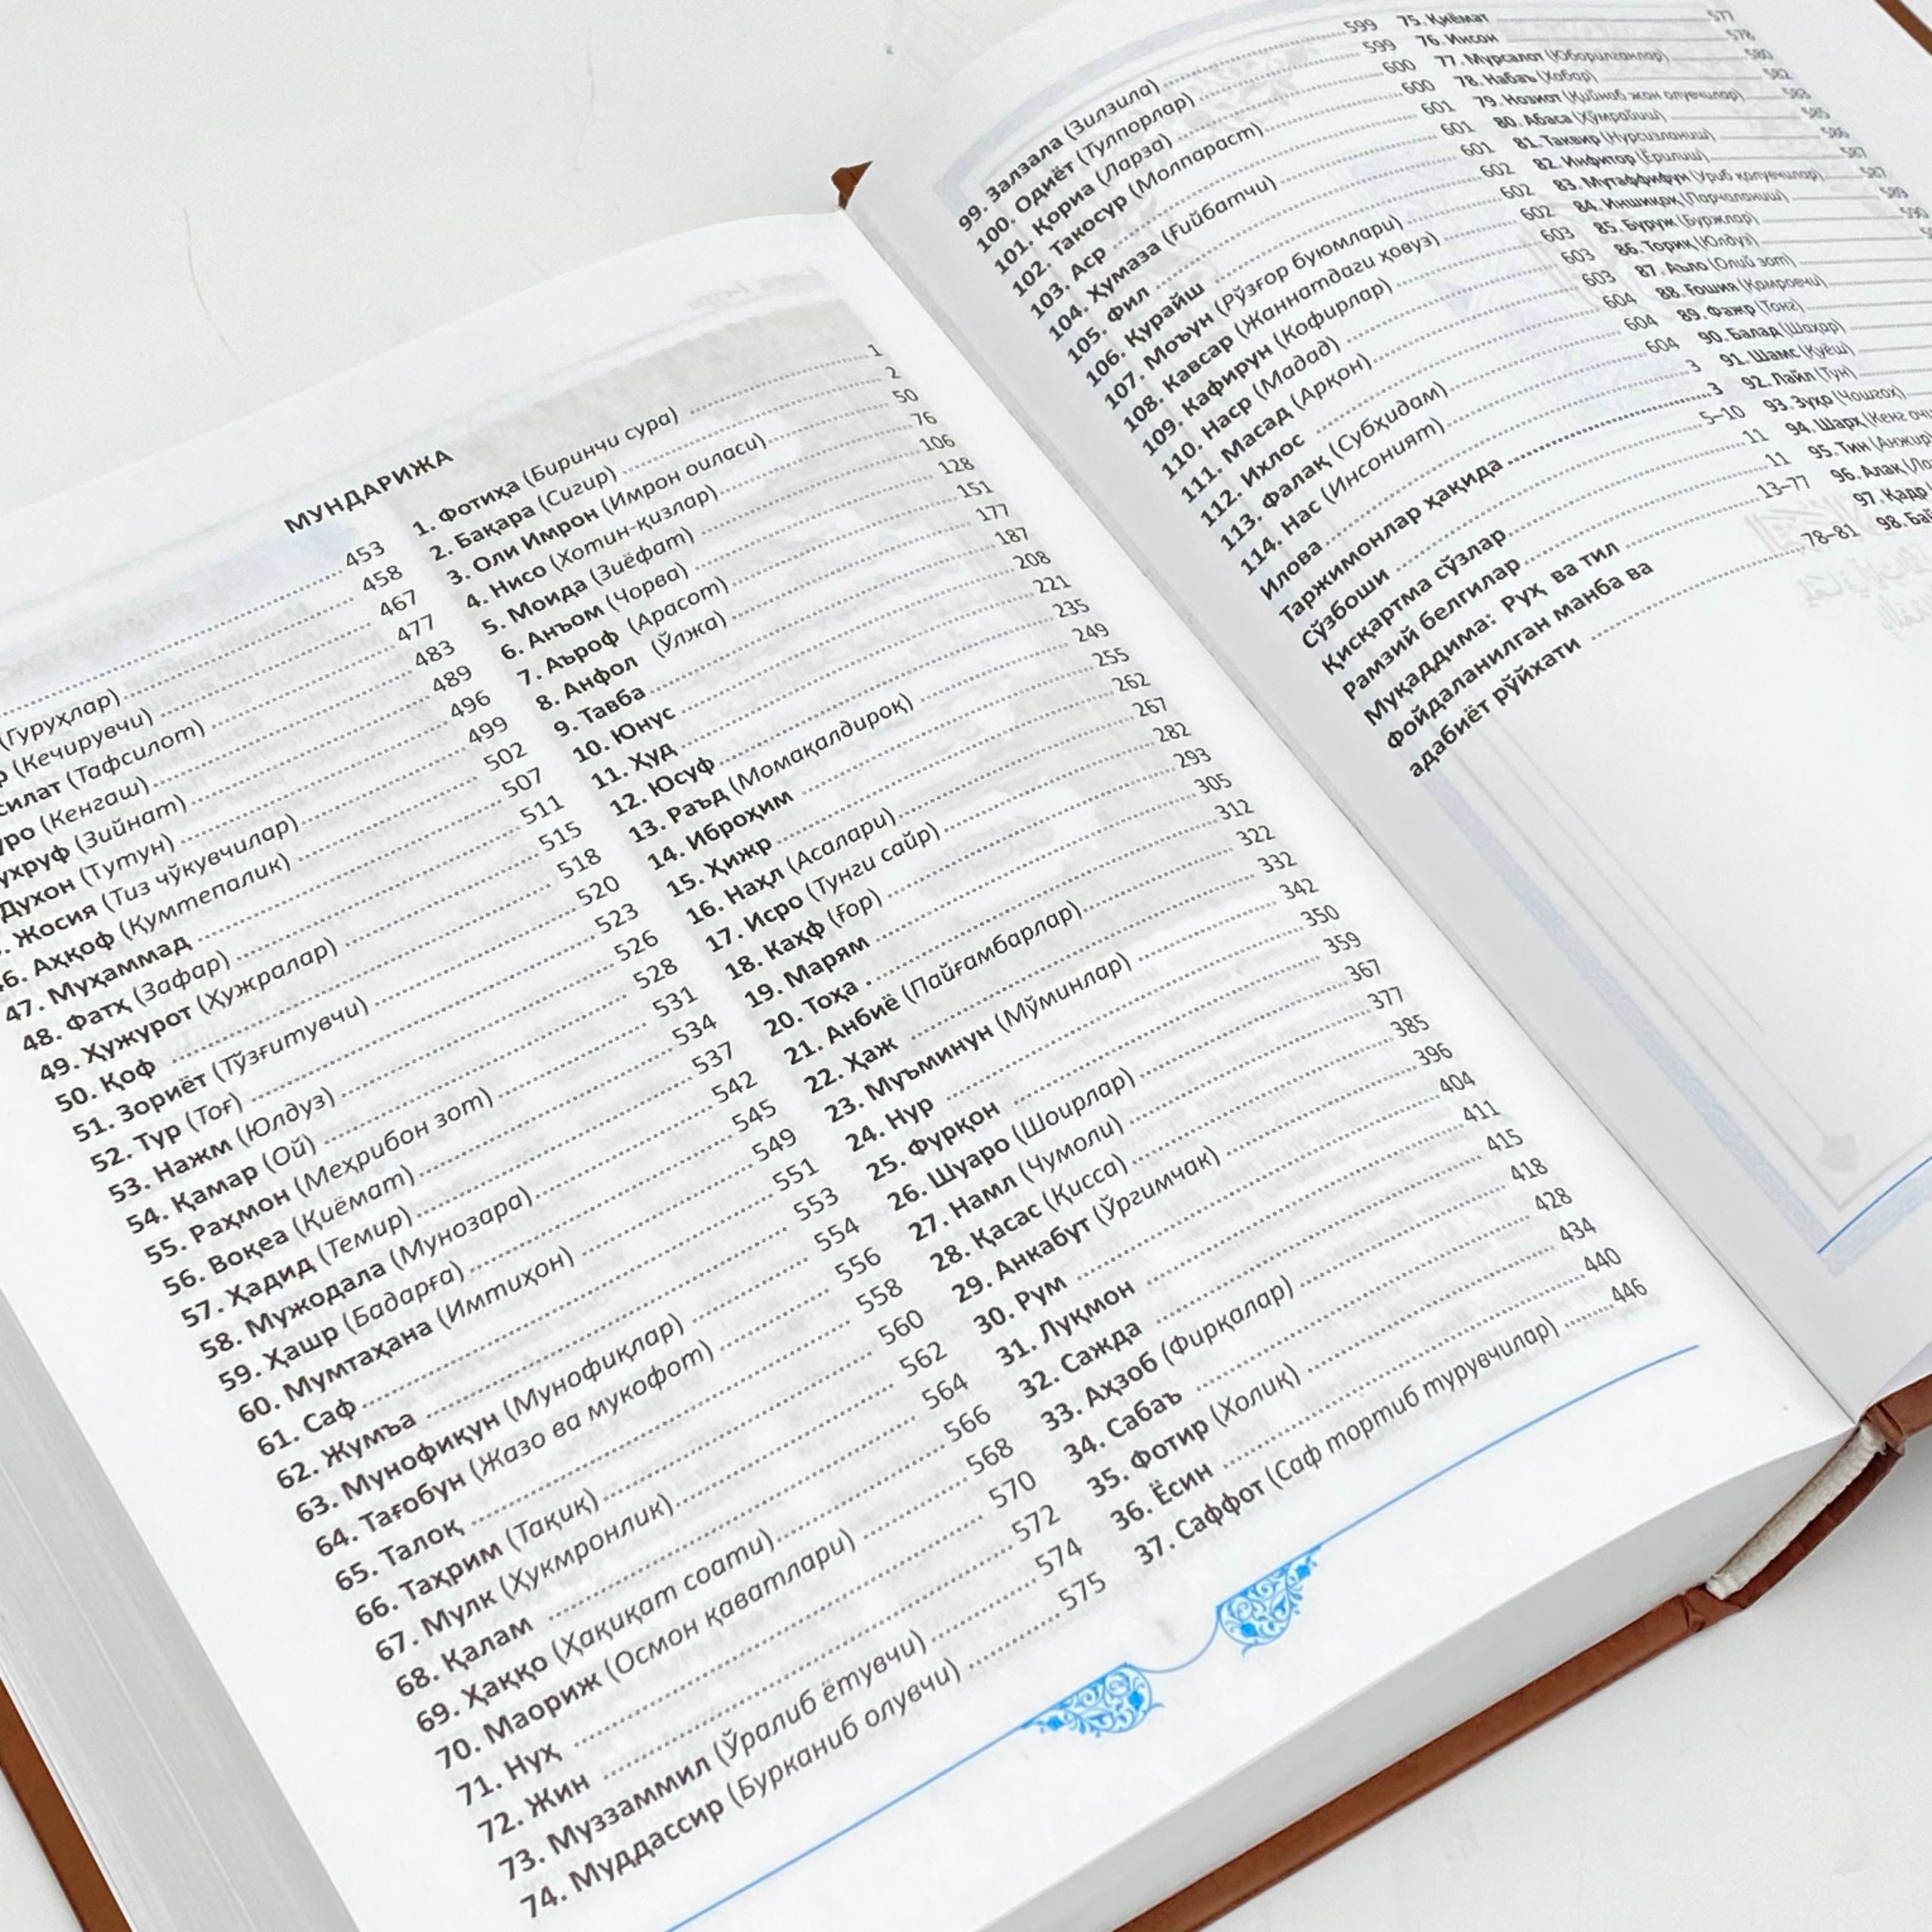 МУНДАРИЖА
1. Фотиҳа (Биринчи сура) 1
2. Бақара (Сигир) 2
3. Оли Имрон (Имрон оиласи) 50
4. Нисо (Хотин-қизлар) 76
5. Моида (Зиёфат) 106
6. Анъом (Чорва) 128
7. Аъроф (Арасот) 151
8. Анфол (Ўлжа) 177
9. Тавба 187
10. Юнус 208
11. Ҳуд 221
12. Юсуф 235
13. Раъд (Момақалдироқ) 249
14. Иброҳим 255
15. Ҳижр 262
16. Наҳл (Асалари) 267
17. Исро (Тунги сайр) 282
18. Каҳф (ғор) 293
19. Марям 305
20. Тоҳа 312
21. Анбиё (Пайғамбарлар) 322
22. Ҳаж 332
23. Муъминун (Мўминлар) 342
24. Нур 350
25. Фурқон 359
26. Шуаро (Шоирлар) 367
27. Намл (Чумоли) 377
28. Қасас (Қисса) 385
29. Анкабут (Ўргимчак) 396
30. Рум 404
31. Луқмон 411
32. Сажда 415
33. Аҳзоб (Фирқалар) 418
34. Сабаъ 428
35. Фотир (Холиқ) 434
36. Ёсин 440
37. Саффот (Саф тортиб турувчилар) 446
453
(Гуруҳлар) 458
(Кечирувчи) 467
(Тафсилот) 477
(Кенгаш) 483
(Зийнат) 489
Духон (Тутун) 496
Жосия (Тиз чўкувчилар) 499
46. Аҳқоф (Қумтепалик) 502
47. Муҳаммад 507
48. Фатҳ (Зафар) 511
49. Ҳужурот (Ҳужралар) 515
50. Қоф 518
51. Зориёт (Тўзғитувчи) 520
52. Тур (Тоғ) 523
53. Нажм (Юлдуз) 526
54. Қамар (Ой) 528
55. Раҳмон (Меҳрибон зот) 531
56. Воқеа (Қиёмат) 534
57. Ҳадид (Темир) 537
58. Мужодала (Мунозара) 542
59. Ҳашр (Бадарға) 545
60. Мумтаҳана (Имтиҳон) 549
61. Саф 551
62. Жумъа 553
63. Мунофиқун (Мунофиқлар) 554
64. Тағобун (Жазо ва мукофот) 556
65. Талоқ 558
66. Таҳрим (Тақиқ) 560
67. Мулк (Ҳукмронлик) 562
68. Қалам 564
69. Ҳаққо (Ҳақиқат соати) 566
70. Маориж (Осмон қаватлари) 568
71. Нуҳ 570
72. Жин 572
73. Муззаммил (Ўралиб ётувчи) 574
74. Муддассир (Бурканиб олувчи) 575
75. Қиёмат 577
76. Инсон 578
77. Мурсалот (Юборилганлар) 580
78. Набаъ (Хабар) 582
79. Нозиот (Қийнаб жон олувчилар) 583
80. Абаса (Хўмрайиш) 585
81. Таквир (Нурсизланиш) 586
82. Инфитор (Ёрилиш) 587
83. Мутаффифун (Уриб қолувчилар) 587
84. Иншиқоқ (Парчаланиш) 589
85. Буруж (Буржлар) 590
86. Ториқ (Юлдуз)
87. Аъло (Олий зот)
88. Ғошия (Қамровчи)
89. Фажр (Тонг)
90. Балад (Шаҳар)
91. Шамс (Қуёш)
92. Лайл (Тун)
93. Зуҳо (Чошгоҳ)
94. Шарҳ (Кенг
95. Тин (Анжир)
96. Алақ
97. Қадр
98.
99. Залзала (Зилзила) 599
100. Одиёт (Тулпорлар) 599
101. Қориа (Ларза) 600
102. Такосур (Молпараст) 600
103. Аср 601
104. Ҳумаза (Ғийбатчи) 601
105. Фил 601
106. Қурайш 602
107. Моъун (Рўзғор буюмлари) 602
108. Кавсар (Жаннатдаги ҳовуз) 602
109. Кафирун (Кофирлар) 603
110. Наср (Мадад) 603
111. Масад (Арқон) 603
112. Ихлос 604
113. Фалақ (Субҳидам) 604
114. Нас (Инсоният) 604
Илова 3
Таржимонлар ҳақида 3
Сўзбоши 5–10
Қисқартма сўзлар 11
Рамзий белгилар 11
Муқаддима: Руҳ ва тил 13–77
Фойдаланилган манба ва
адабиёт рўйхати 78–81